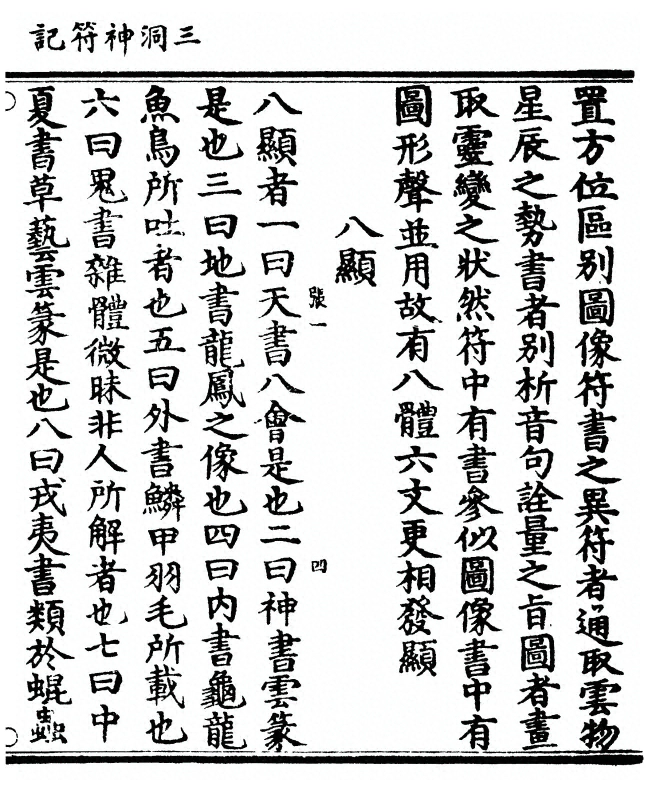 三洞神符記
置方位區別圖像符書之異符者通取雲物
星辰之勢書者別析音句詮量之旨圖者畫
取靈變之狀然符中有書參似圖像書中有
圖形聲並用故有八體六文更相發顯
八顯
張一
四
八顯者一曰天書八會是也二曰神書雲篆
是也三曰地書龍鳳之像也四曰內書龜龍
魚鳥所吐者也五曰外書鱗甲羽毛所載也
六曰鬼書雜體微昧非人所解者也七曰中
夏書草藝雲篆是也八曰戎夷書類於蜫蟲